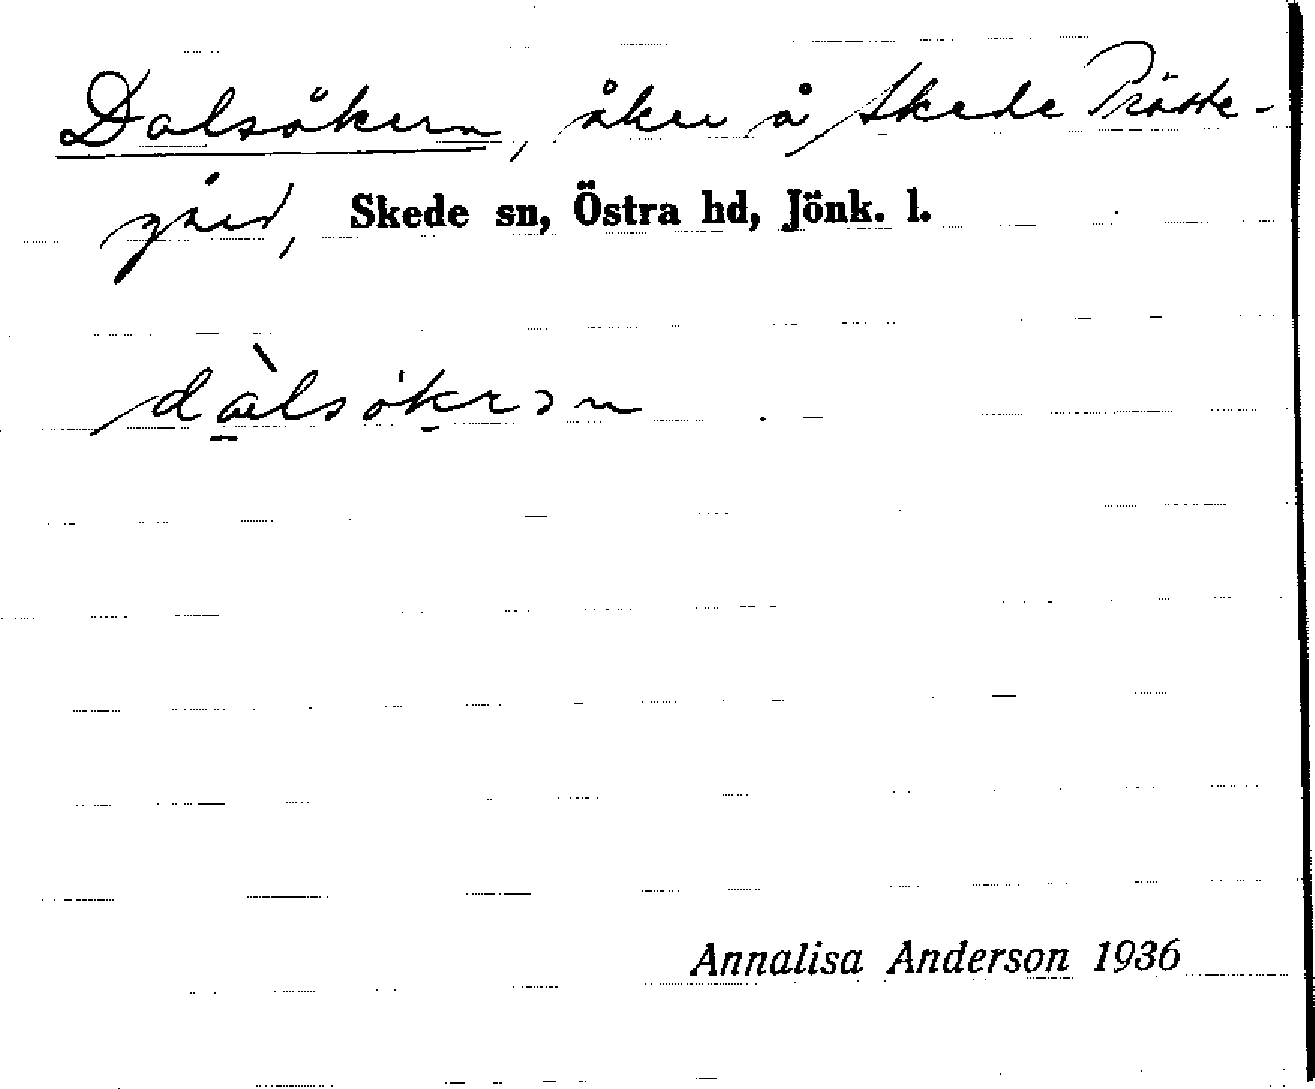 Dalsåkern, åker å Skede Präste-
gård, Skede sn, Östra hd, Jönk. l.
Annalisa Anderson 1936